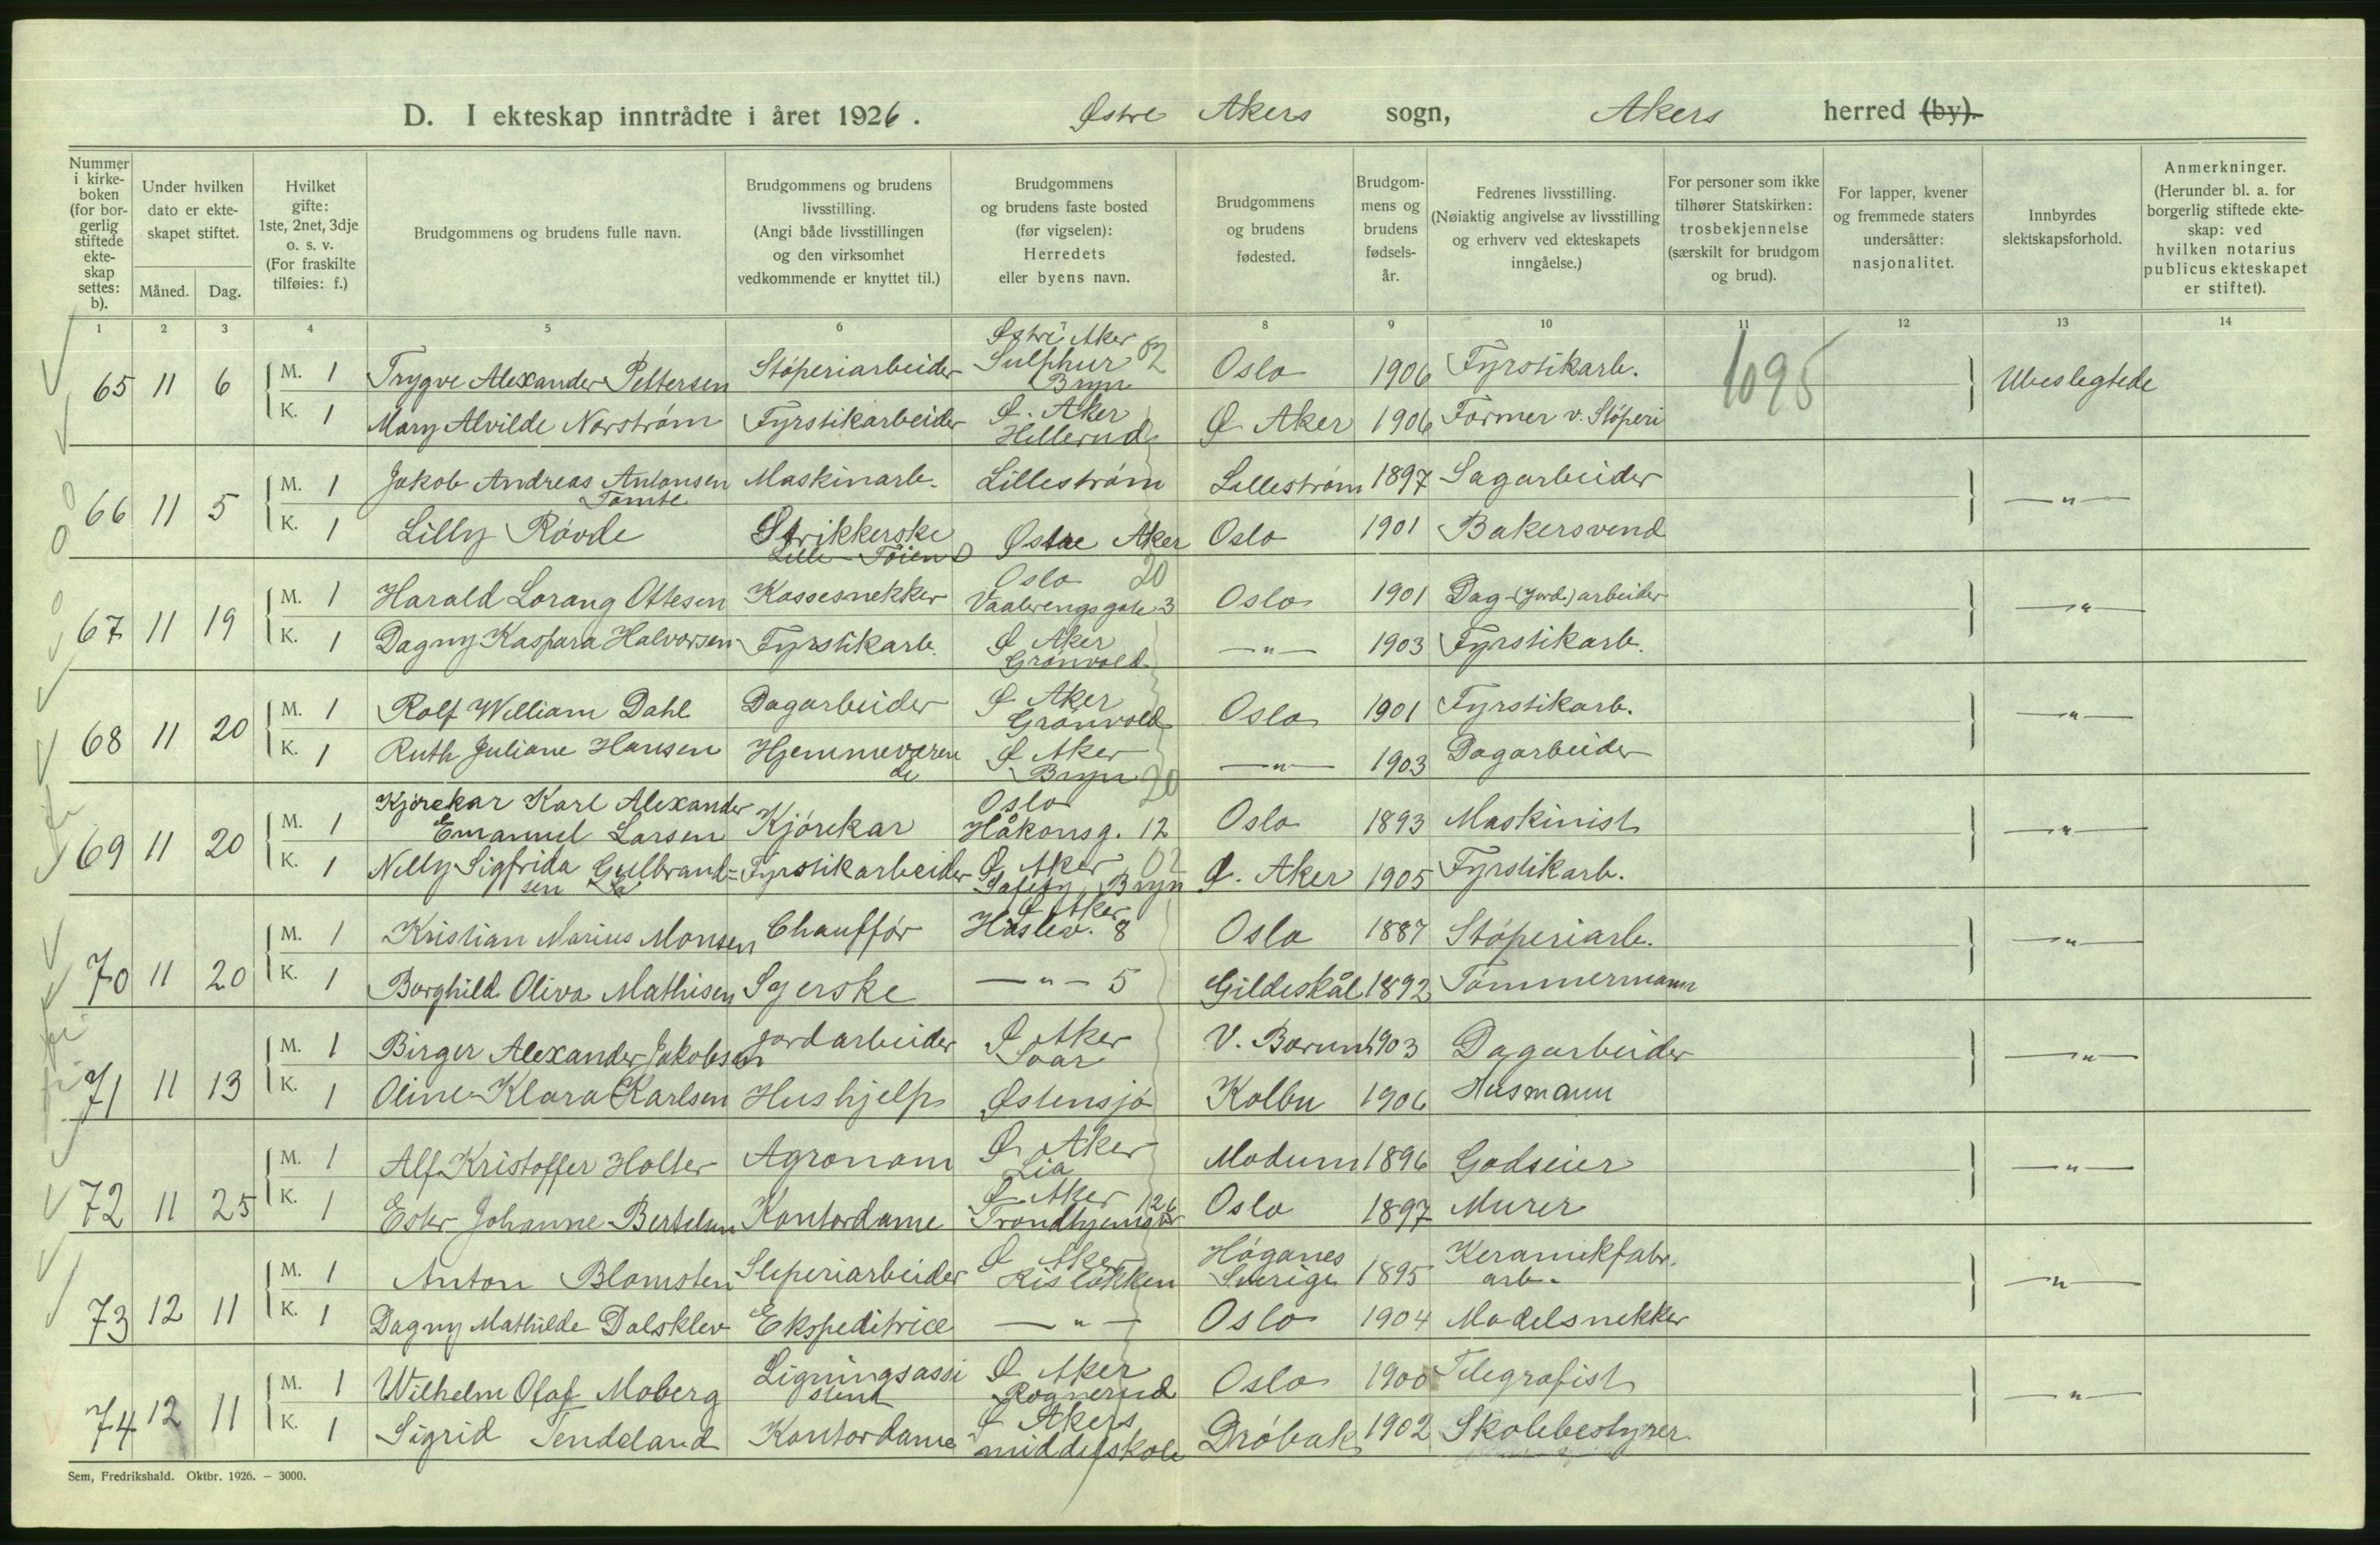 D. I ekteskap inntrådte i året 1926. Østre Akers sogn, Akers herred (by).
Nummer i kirke-boken (for bor-gerlig stiftede ekte-skap settes: b).
Under hvilken dato er ekte-skapet stiftet.
Måned. Dag.
Hvilket gifte: 1ste, 2net, 3dje o. s. v. (For fraskilte tilføies: f.)
Brudgommens og brudens fulle navn.
Brudgommens og brudens livsstilling. (Angi både livsstillingen og den virksomhet vedkommende er knyttet til.)
Brudgommens og brudens faste bosted (før vigselen): Herredets eller byens navn.
Brudgommens og brudens fødested.
Brudgom-mens og brudens fødsels-år.
Fedrenes livsstilling. (Nøiaktig angivelse av livsstilling og erhverv ved ekteskapets inngåelse.)
For personer som ikke tilhører Statskirken: trosbekjennelse (særskilt for brudgom og brud).
For lapper, kvener og fremmede staters undersåtter: nasjonalitet.
Innbyrdes slektskapsforhold.
Anmerkninger. (Herunder bl. a. for borgerlig stiftede ekte-skap: ved hvilken notarius publicus ekteskapet er stiftet).
1 2 3 4 5 6 8 9 10 11 12 13 14
65 11 6 M. 1 Trygve Alexander Pettersen Støperiarbeider Østre Aker Sulphur Bryn 02 Oslo 1906 Fyrstikarb. 1095 Ubeslegtede
K. 1 Mary Alvilde Norstrøm Fyrstikarbeider Ø. Aker Hellerud Ø. Aker 1906 Former v. Støperi
66 11 5 M. 1 Jakob Andreas Antonsen Tomte Maskinarb. Lillestrøm Lillestrøm 1897 Sagarbeider —"—
K. 1 Lilly Røvde Strikkerske Lille-Tøien Østre Aker Oslo 1901 Bakersvend
67 11 19 M. 1 Harald Lorang Ottesen Kassesnekker Oslo Vaalerengsgate 3 20 Oslo 1901 Dag-(jord.)arbeider —"—
K. 1 Dagny Kaspara Halvorsen Fyrstikarb. Ø Aker Grønvold —"— 1903 Fyrstikarb.
68 11 20 M. 1 Rolf William Dahl Dagarbeider Ø Aker Grønvold Oslo 1901 Fyrstikarb. —"—
K. 1 Ruth Juliane Hansen Hjemmeværende Ø Aker Bryn 20 —"— 1903 Dagarbeider
69 11 20 M. 1 Kjørekar Karl Alexander Emanuel Larsen Kjørekar Oslo Håkonsg. 12 Oslo 1893 Maskinist —"—
K. 1 Nelly Sigfrida Gulbrand=sen Fyrstikarbeider Ø Aker Bryn 02 Ø. Aker 1905 Fyrstikarb.
70 11 20 M. 1 Kristian Marius Monsen Chauffør Ø Aker Haslev. 8 Oslo 1887 Støperiarb. —"—
K. 1 Borghild Oliva Mathisen Syerske —"— 5 Gildeskål 1892 Tømmermann
71 11 13 M. 1 Birger Alexander Jakobsen jordarbeider Ø Aker V. Bærum 1903 Dagarbeider —"—
K. 1 Oline Klara Karlsen Hushjelp Østensjø Kolbu 1906 Husmann
72 11 25 M. 1 Alf Kristoffer Holter Agronom Ø Aker Lia Modum 1896 Godseier —"—
K. 1 Ester Johanne Bertelsen Kontordame Ø Aker Trondhjemsv 126 Oslo 1897 Murer
73 12 11 M. 1 Anton Blomsten Sleperiarbeider Ø Aker Risløkken Høganes Sverige 1895 Keramikfabr. arb. —"—
K. 1 Dagny Mathilde Dalsklev Ekspeditrice —"— Oslo 1904 Modelsnekker
74 12 11 M. 1 Wilhelm Olaf Moberg Ligningsassistent Ø Aker Rognerud Oslo 1900 Telegrafist —"—
K. 1 Sigrid Tendeland Kontordame Ø Akers middelskole Drøbak 1902 Skolebestyrer
Sem, Fredrikshald. Oktbr. 1926. – 3000.